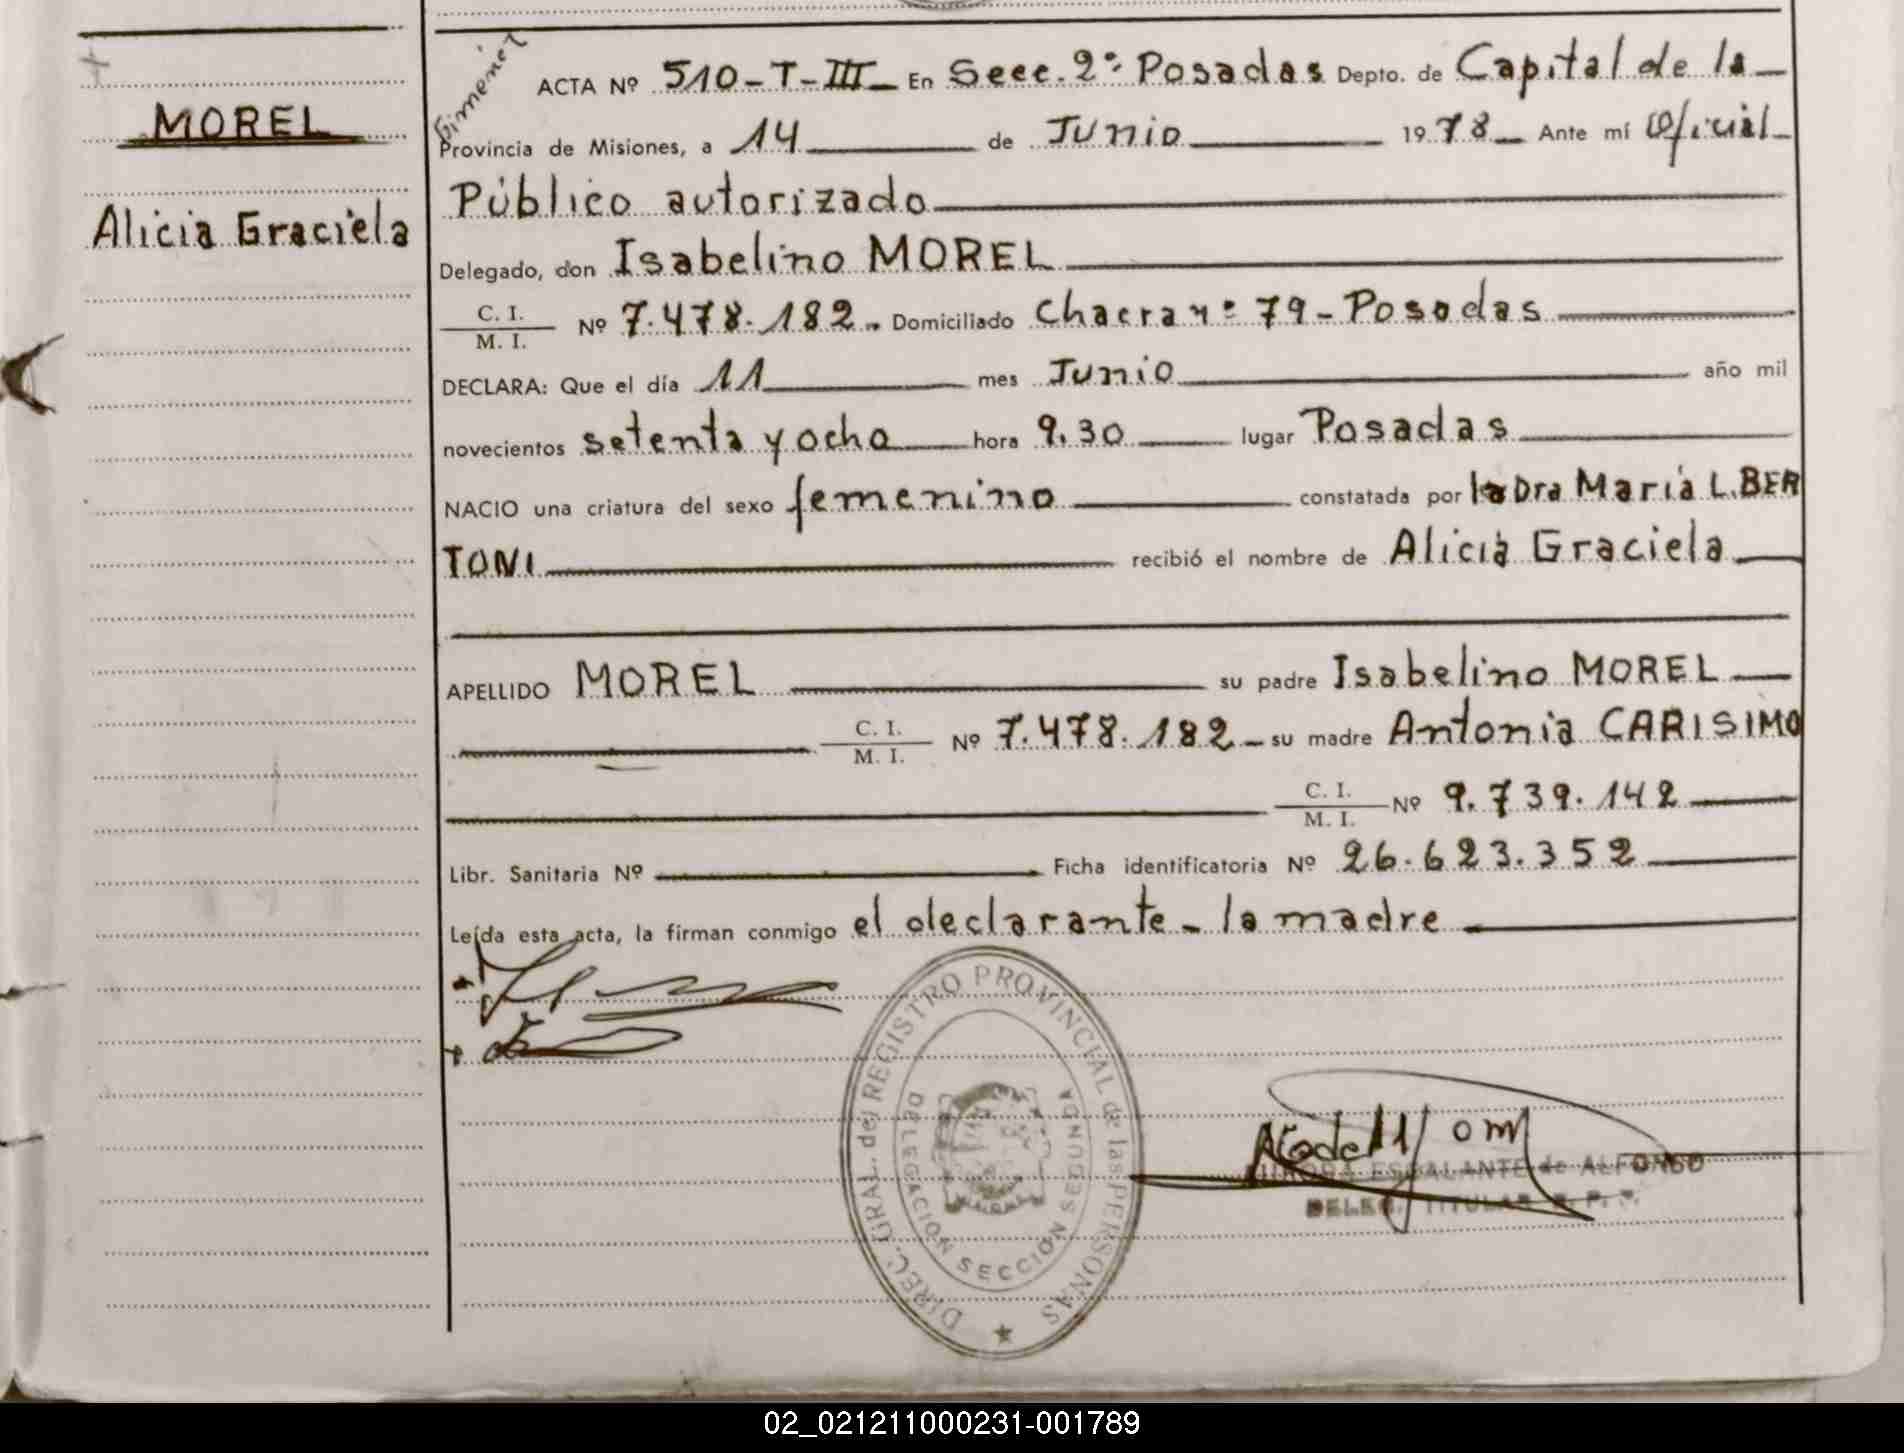 MOREL
Alicia Graciela
Gimenez
ACTA Nº 510-T-III- En Secc. 2º Posadas Depto. de Capital de la
Provincia de Misiones, a 14 de Junio 1978 Ante mí Oficial
Público autorizado
Delegado, don Isabelino MOREL
C. I. / M. I. Nº 7.478.182. Domiciliado Chacra nº 79-Posadas
DECLARA: Que el día 11 mes Junio año mil
novecientos setenta y ocho hora 9.30 lugar Posadas
NACIO una criatura del sexo femenino constatada por la Dra María L. BER
TONI recibió el nombre de Alicia Graciela
APELLIDO MOREL su padre Isabelino MOREL
C. I. / M. I. Nº 7.478.182 su madre Antonia CARISIMO
C. I. / M. I. Nº 9.739.142
Libr. Sanitaria Nº Ficha identificatoria Nº 26.623.352
Leída esta acta, la firman conmigo el declarante - la madre
DIREC. GRAL. del REGISTRO PROVINCIAL de las PERSONAS
DELEGACION SECCION SEGUNDA
AURORA ESCALANTE de ALFONSO
DELEG. TITULAR R. P. P.
02_021211000231-001789